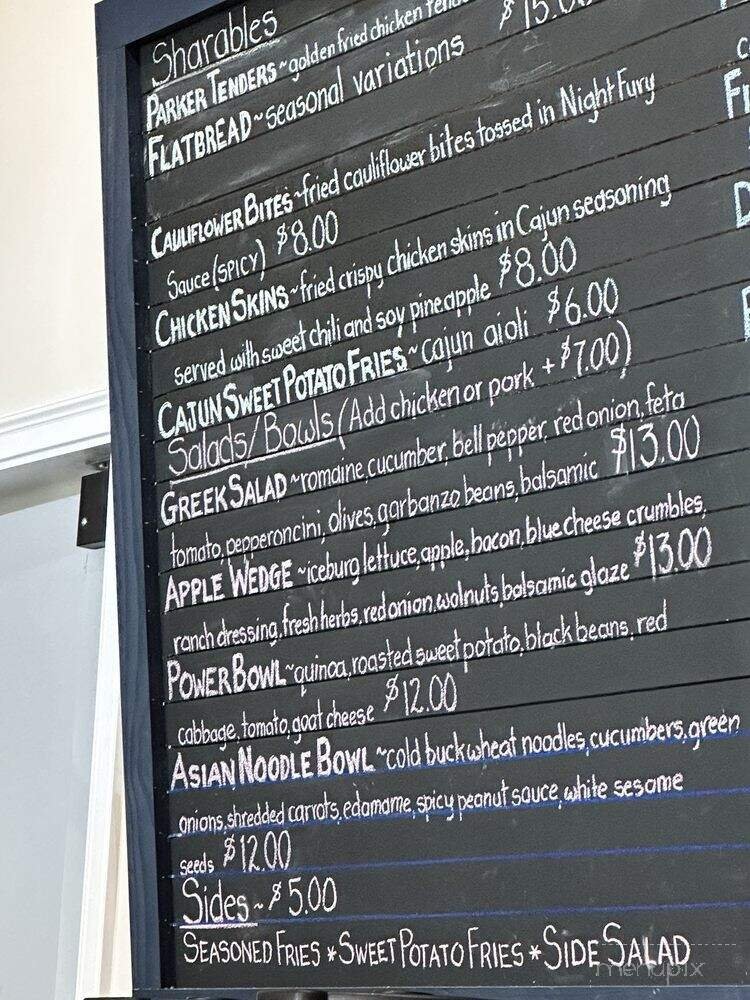 Sharables
PARKER TENDERS ~ golden fried chicken
$15.00
FLATBREAD ~ seasonal variations
CAULIFLOWER BITES ~ fried cauliflower bites tossed in Night Fury
Sauce (SPICY) $8.00
CHICKEN SKINS ~ fried crispy chicken skins in Cajun seasoning
served with sweet chili and soy pineapple $8.00
CAJUN SWEET POTATO FRIES ~ cajun aioli $6.00
Salads/Bowls (Add chicken or pork + $7.00)
GREEK SALAD ~ romaine, cucumber, bell pepper, red onion, feta
tomato, pepperoncini, olives, garbanzo beans, balsamic $13.00
APPLE WEDGE ~ iceburg lettuce, apple, bacon, blue cheese crumbles,
ranch dressing, fresh herbs, red onion, walnuts, balsamic glaze $13.00
POWER BOWL ~ quinoa, roasted sweet potato, black beans, red
cabbage, tomato, goat cheese $12.00
ASIAN NOODLE BOWL ~ cold buckwheat noodles, cucumbers, green
onions, shredded carrots, edamame, spicy peanut sauce, white sesame
seeds $12.00
Sides ~ $5.00
SEASONED FRIES * SWEET POTATO FRIES * SIDE SALAD
menupix